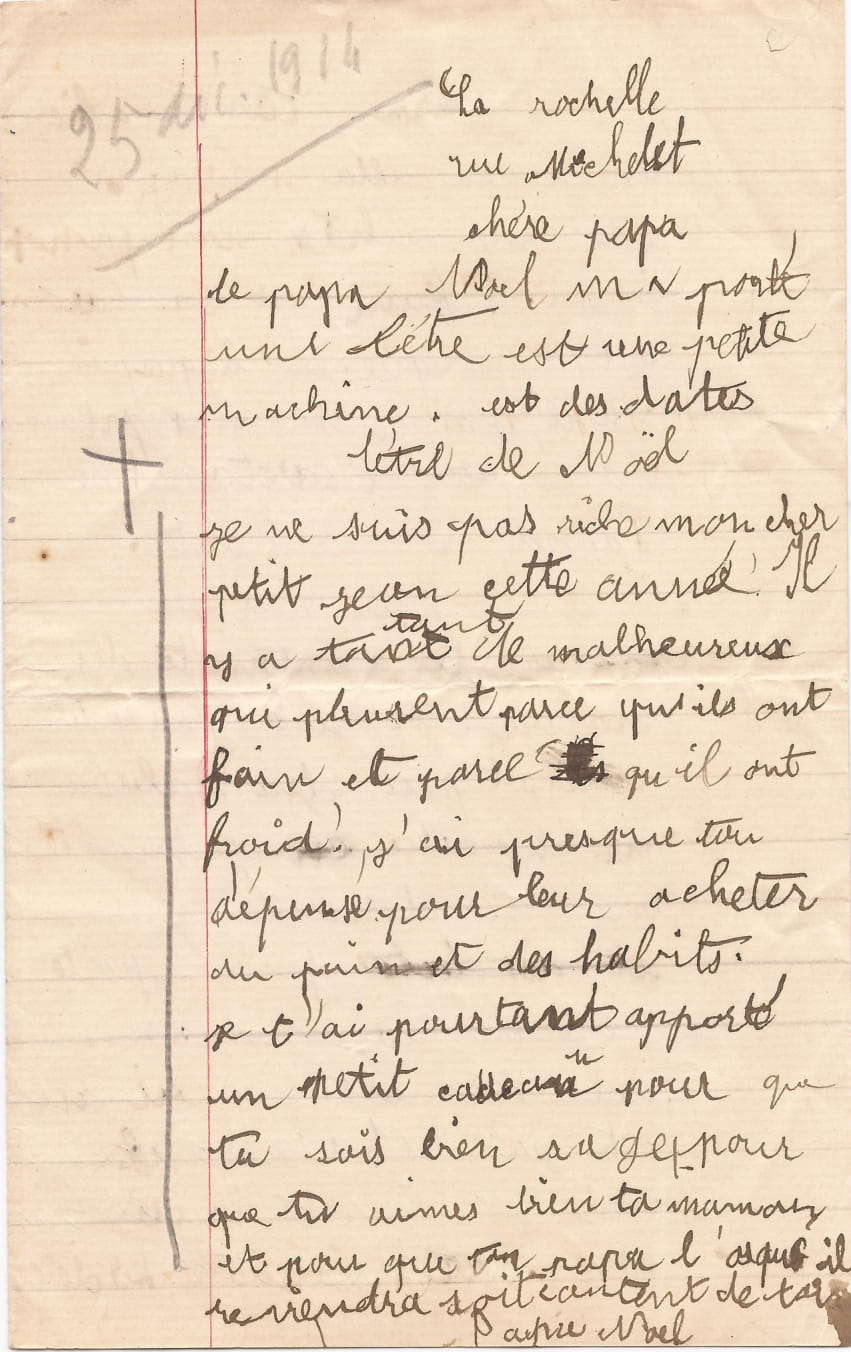 25 déc. 1914
La rochelle
rue Michelet
chére papa
le papa Noel m a porté
une létre est une petite
machine. est des dates
létre de Nöel
je ne suis pas riche mon cher
petit jean cette anneé! Il
tant
y a tant de malheureux
qui pleurent parce qu'ils ont
fain et parce qu'il ont
froid! j'ai presque tou
dépensé pour leur acheter
du pain et des habits.
je t'ai pourtant apporté
un petit cadeau pour que
tu sois bien sage pour
que tu aimes bien ta maman
et pour que ton papa l'orsqu'il
reviendra soit contant de toi
Papa Noel